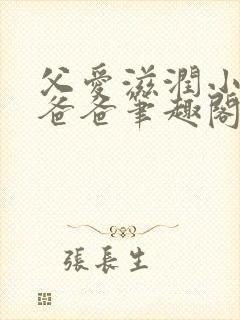 父愛滋潤小
爸爸筆趣閣
張長生